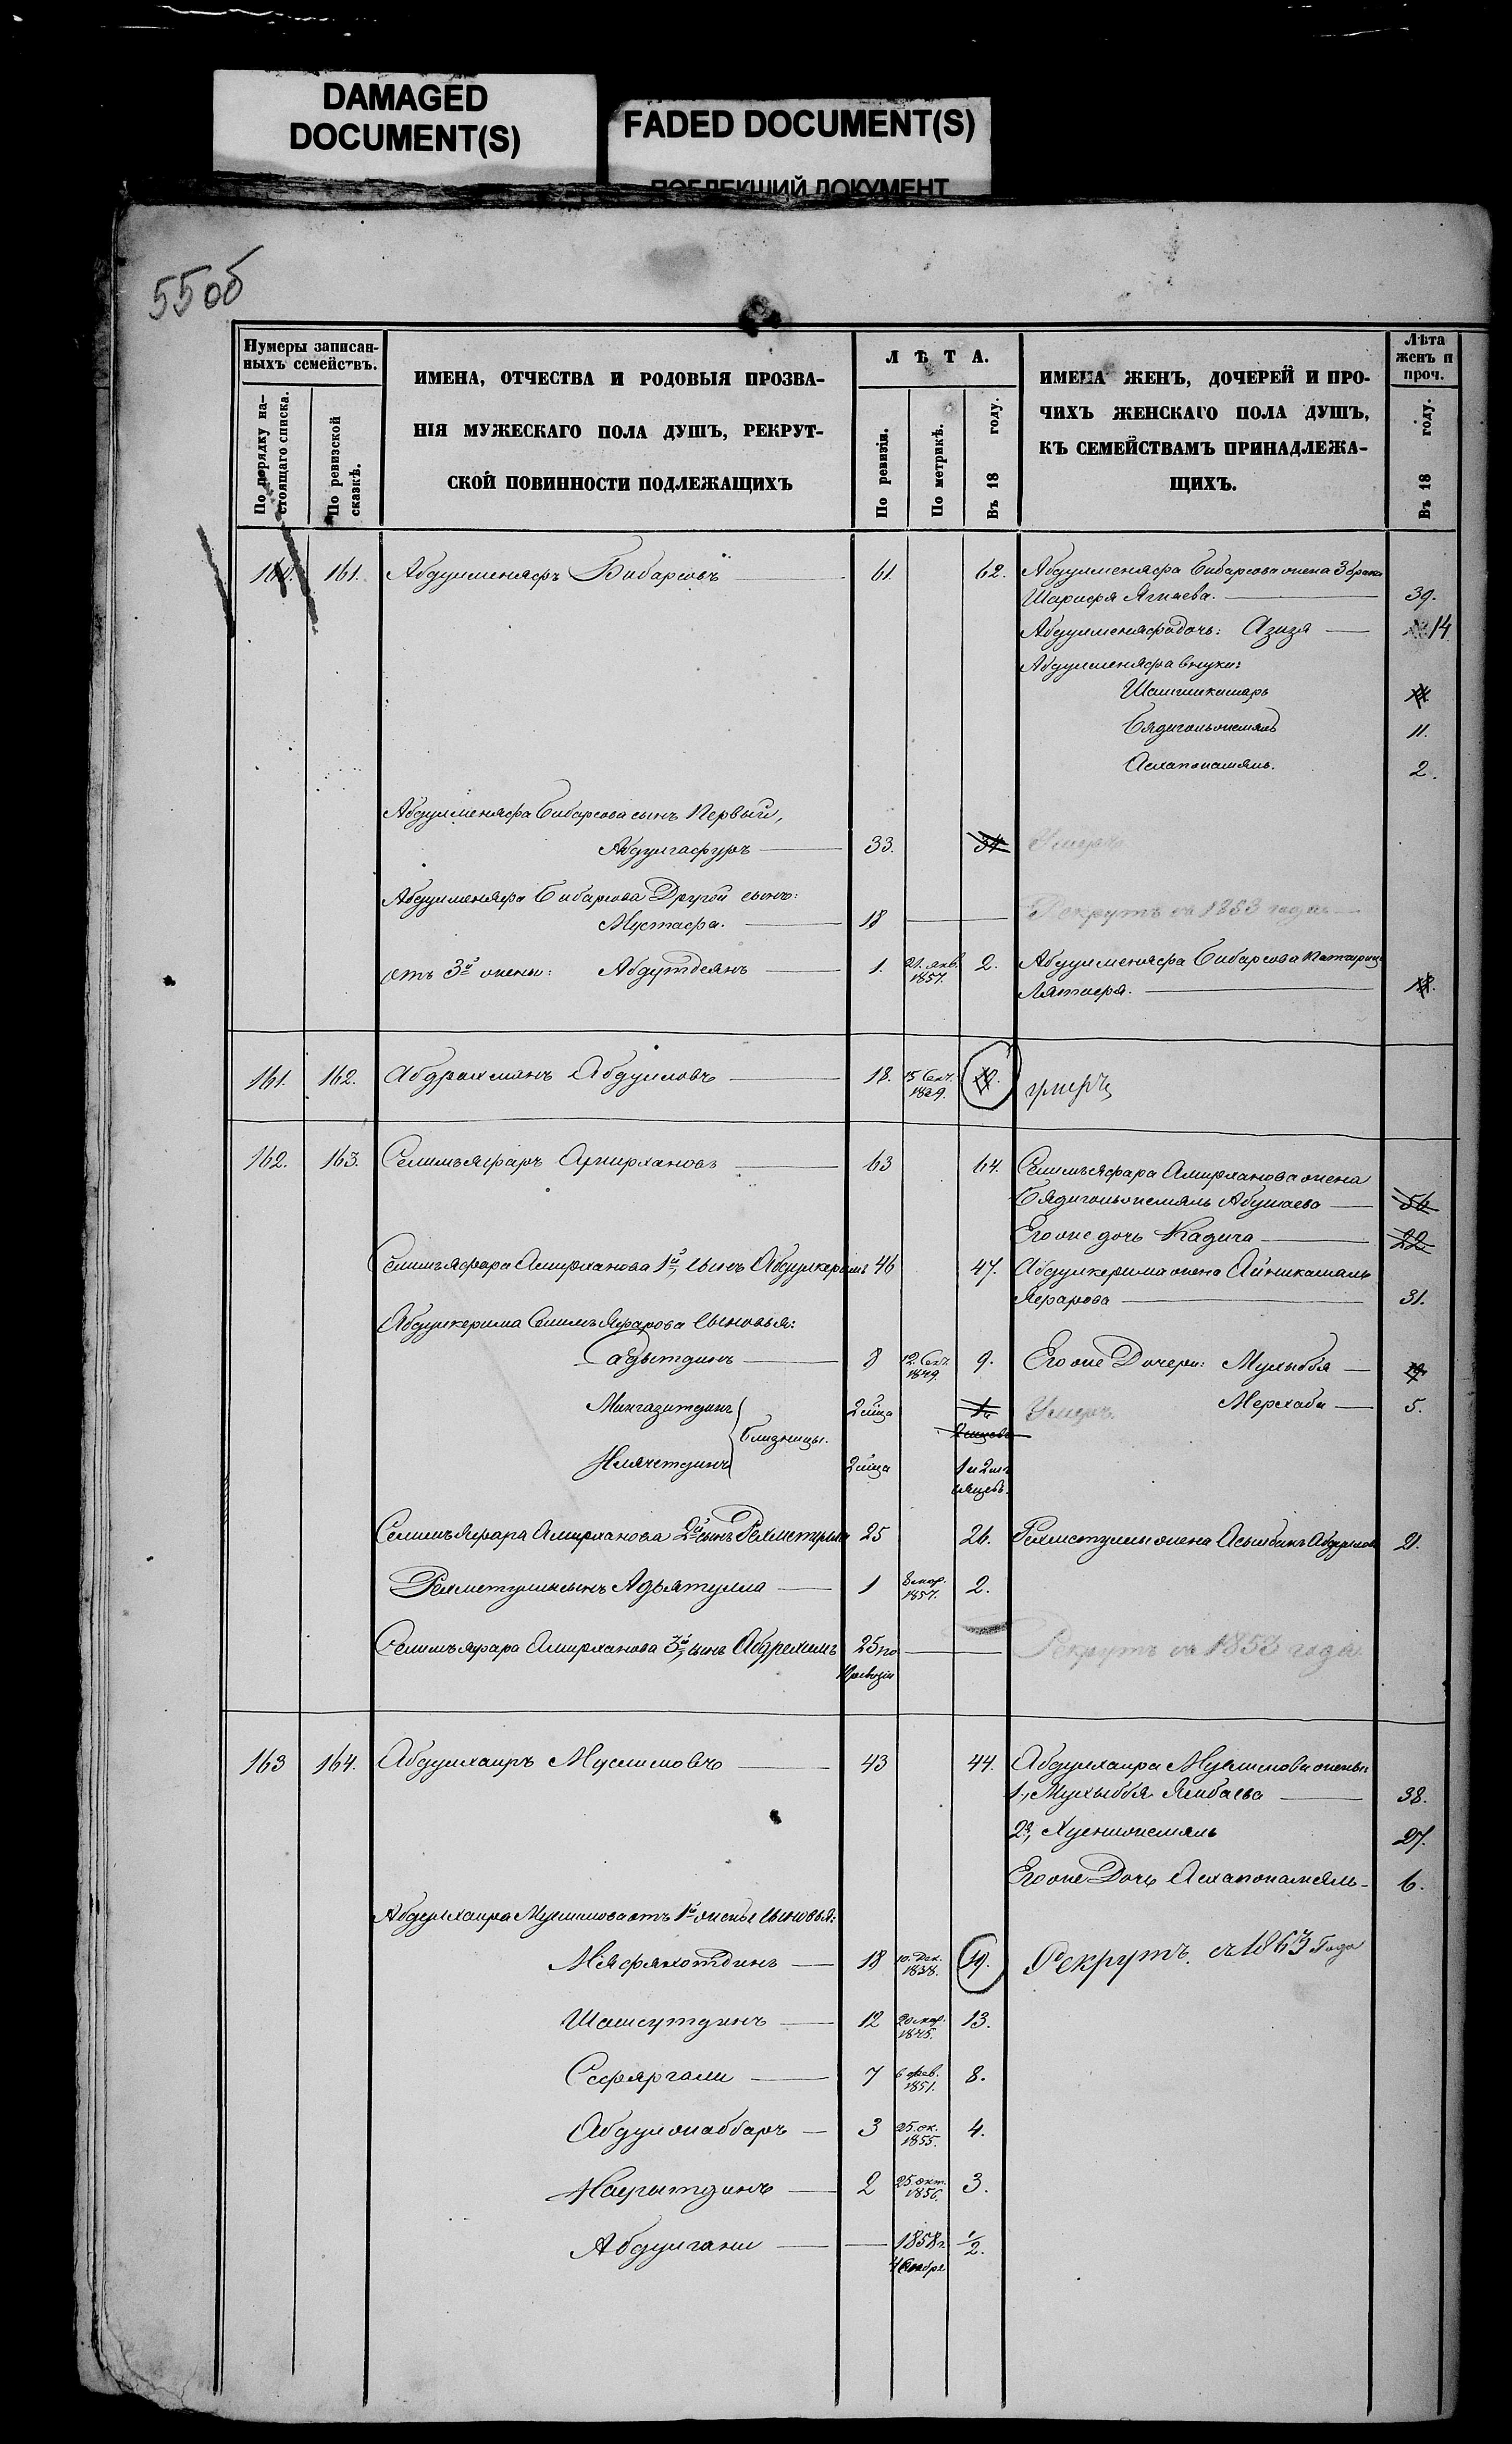 DAMAGED
DOCUMENT(S)
FADED DOCUMENT(S)
ПОБЛЕКШИЙ ДОКУМЕНТ
55об
Нумеры записан-
ныхъ семействъ.
По порядку на-
стоящаго списка.
По ревизской
сказкѣ.
ИМЕНА, ОТЧЕСТВА И РОДОВЫЯ ПРОЗВА-
НІЯ МУЖЕСКАГО ПОЛА ДУШЪ, РЕКРУТ-
СКОЙ ПОВИННОСТИ ПОДЛЕЖАЩИХЪ
ЛѢТА.
По ревизіи.
По метрикѣ.
Въ 18 году.
ИМЕНА ЖЕНЪ, ДОЧЕРЕЙ И ПРО-
ЧИХЪ ЖЕНСКАГО ПОЛА ДУШЪ,
КЪ СЕМЕЙСТВАМЪ ПРИНАДЛЕЖА-
ЩИХЪ.
Лѣта
женъ и
проч.
Въ 18 году.
160. 161. Абдулменяфъ Бибарсовъ 61. 62. Абдулменяфа Бибарсова жена 3 брака
Шарифя Ягпаева. 39.
Абдулменяфа дочь: Азизя 14
Абдулменяфа внуки:
Шамшикамаръ
Бядигольжемяль 11.
Асхапжамяль. 2.
Абдулменяфа Бибарсова сынъ Первый,
Абдулгафуръ 33. 34 Умеръ
Абдулменяфа Бибарсова Другой сынъ:
Мустафа. 18 Рекрутъ съ 1853 года
отъ 3й жены: 1. 21. янв. 2. Абдулменяфа Бибарсова
1857. Лятифя.
161. 162. Абдрахманъ Абдуловъ 18. 15 Сент. умеръ
1839.
162. 163. Селимъяфаръ Амирхановъ 63 64. Селимъяфара Амирханова жена
Бядигольжемяль 56
Его же дочь Кадича 22
Селимъяфара Амирханова 1й, сынъ Абдулкеримъ 46 47. Абдулкерима жена Айникамаль
31.
Абдулкерима Селимъяфарова сыновья:
Садытдинъ 8 12. Сент. 9. Его же Дочери: Мулыббя
1849.
Мингазитдинъ 2 мца 1 Умеръ. Мерхаба 5.
близницы.
2 мца 1 и 2 мѣ
сяцевъ.
Селимъяфара Амирханова 2й сынъ Рехметулла 25 26. Рехметуллы жена 21.
Рехметуллы сынъ Адъятулла 1 8 мар. 2.
1857.
Селимъяфара Амирханова 3й, сынъ Абдремимъ 25 по Рекрутъ съ 1853 года
ревизіи
163 164. Абдулхаиръ Муслимовъ 43 44. Абдулхаира Муслимова жены:
1, Мухыббя Ямбаева 38.
2я, 27.
Его же Дочь Асхапжамяль 6.
Абдулхаира Муслимова отъ 1й жены сыновья:
Мифяхотдинъ 18 10. Дек. 19. Рекрутъ. съ 1863 Года
1838.
Шамсутдинъ 12 13.
1845.
Сефяргали 7 6 фев. 8.
1851.
Абдулжаббаръ 3 25. ок. 4.
1855.
2 25. окт. 3.
1856.
Абдулгани 1858 г. 1/2.